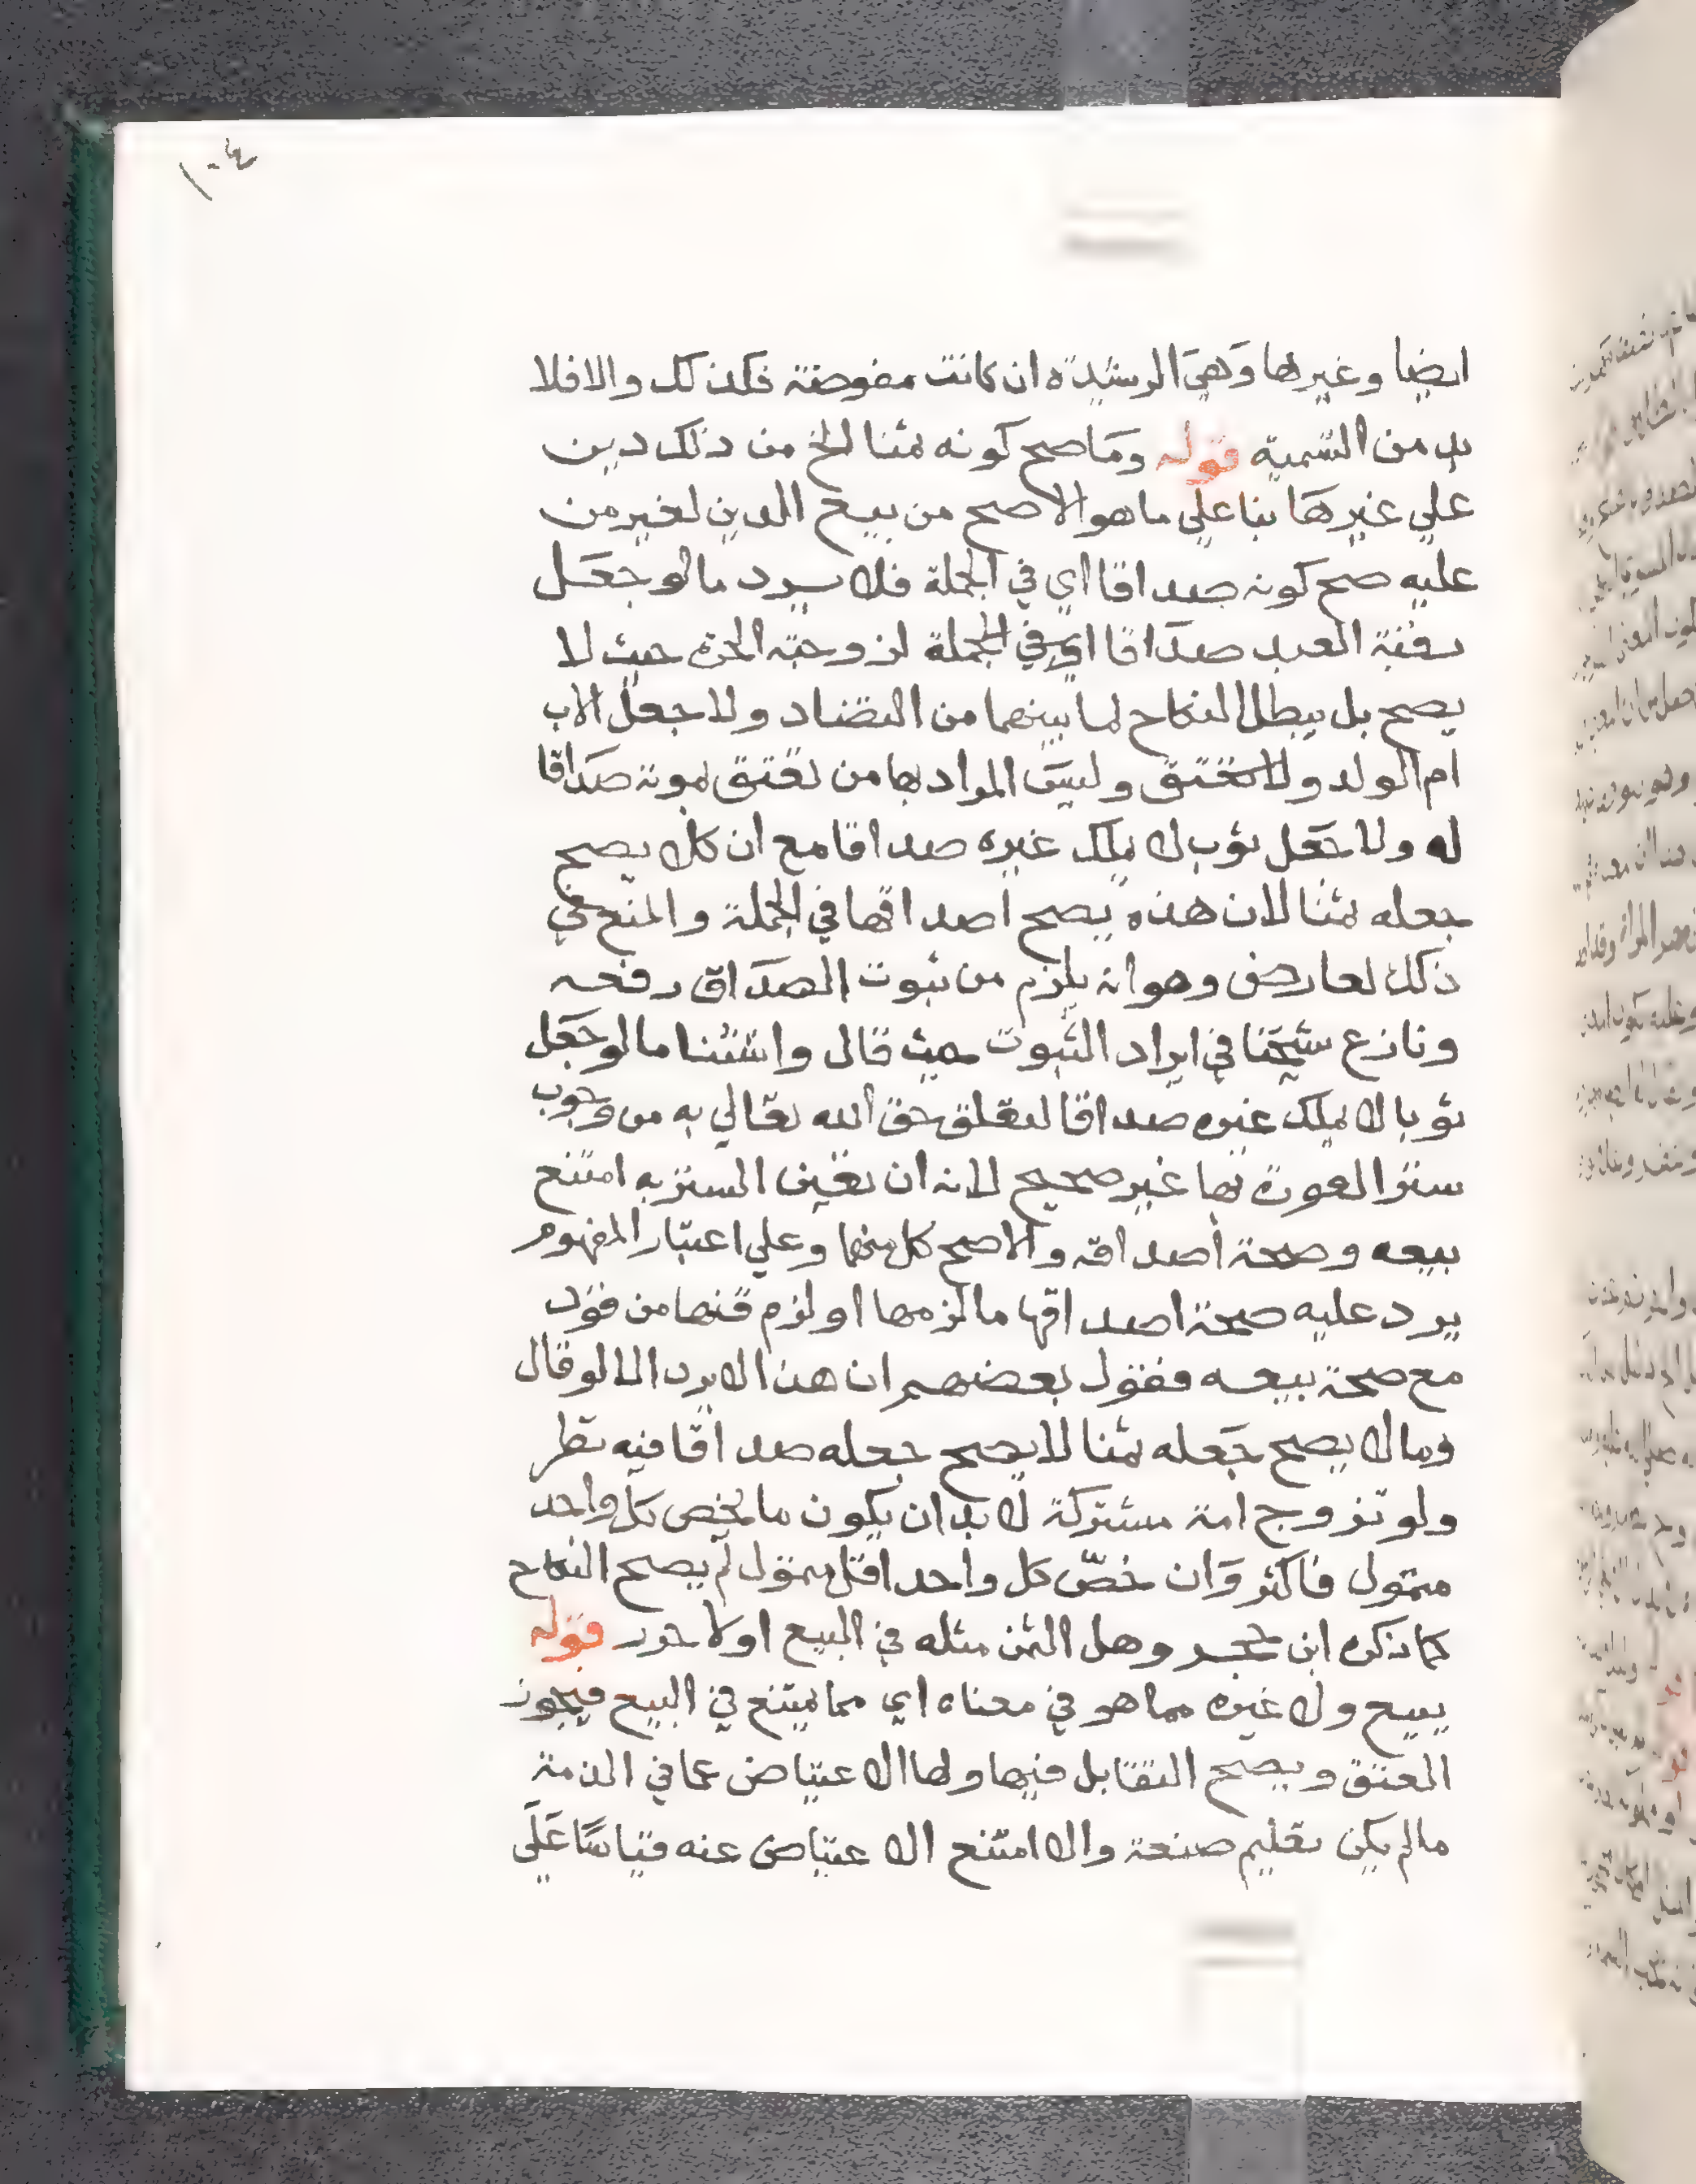 ١٠٤
ايضا وغيرها وَهيَ الرشيدة ان كانت مفوضة فكذلك والا فلا
بد من التسمية قوله وَمَا صح كونه ثمنا الخ من ذلك دين
علي غيرهَا بنا علي ما هو الاصح من بيع الدين لغير من
عليه صح كونه صداقا اي في الجملة فلا يرد ما لو جعَل
رقبة العبد صدَاقا اي في الجملة لزوجته الحرة حيث لا
يصح بل يبطل النكاح لما بينهما من التضاد ولا جعل الاب
ام الولد ولا تعتق وليسَ المراد بها من تعتق بموته صَداقا
له ولا جَعل ثوب لا يملك غيره صداقا مع ان كلا يصح
جعله ثمنا لان هذه يصح اصداقها في الجملة والمنع في
ذلك لعارض وهو انه يلزم من ثبوت الصدَاق رفعه
ونازع شيخَنا في ايراد الثبوت حيث قال واستثنا ما لو جَعَل
ثوبا لا يملك غيره صداقا لتعلق حق الله تعالي به من وجوب
ستر العورة بها غير صحيح لانه ان تعين الستر به امتنع
بيعه وصحة اصداقه والاصح كل منهما وعلي اعتبار المفهوم
يرد عليه صحة اصداقها ما لزمها او لزم قنها من قود
مع صحة بيعه فقول بعضهم ان هذا لا يرد الا لو قال
وما لا يصح جَعله ثمنا لا يصح جعله صداقا فيه نظر
ولو تزوج امة مشتركة لا بد ان يكون ما يخص كل واحد
متمول فاكثر وَان خصّ كل واحد اقل متمول لم يصح النكاح
كما ذكره ابن حجر وهل الثمن مثله في البيع اولا حرر قوله
يبيح ولا غيره مما هو في معناه اي مما يمتنع في البيع فيجوز
العتق ويصح التقابل فيها ولها الاعتياض عما في الذمة
ما لم يكن تعليم صنعة والا امتنع الاعتياض عنه قياسًا عَلَي